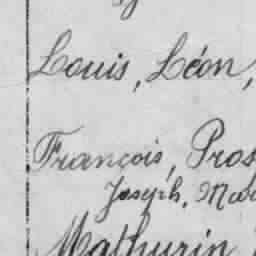 Louis, Léon,
François, Pros
Joseph, Ma
Mathurin